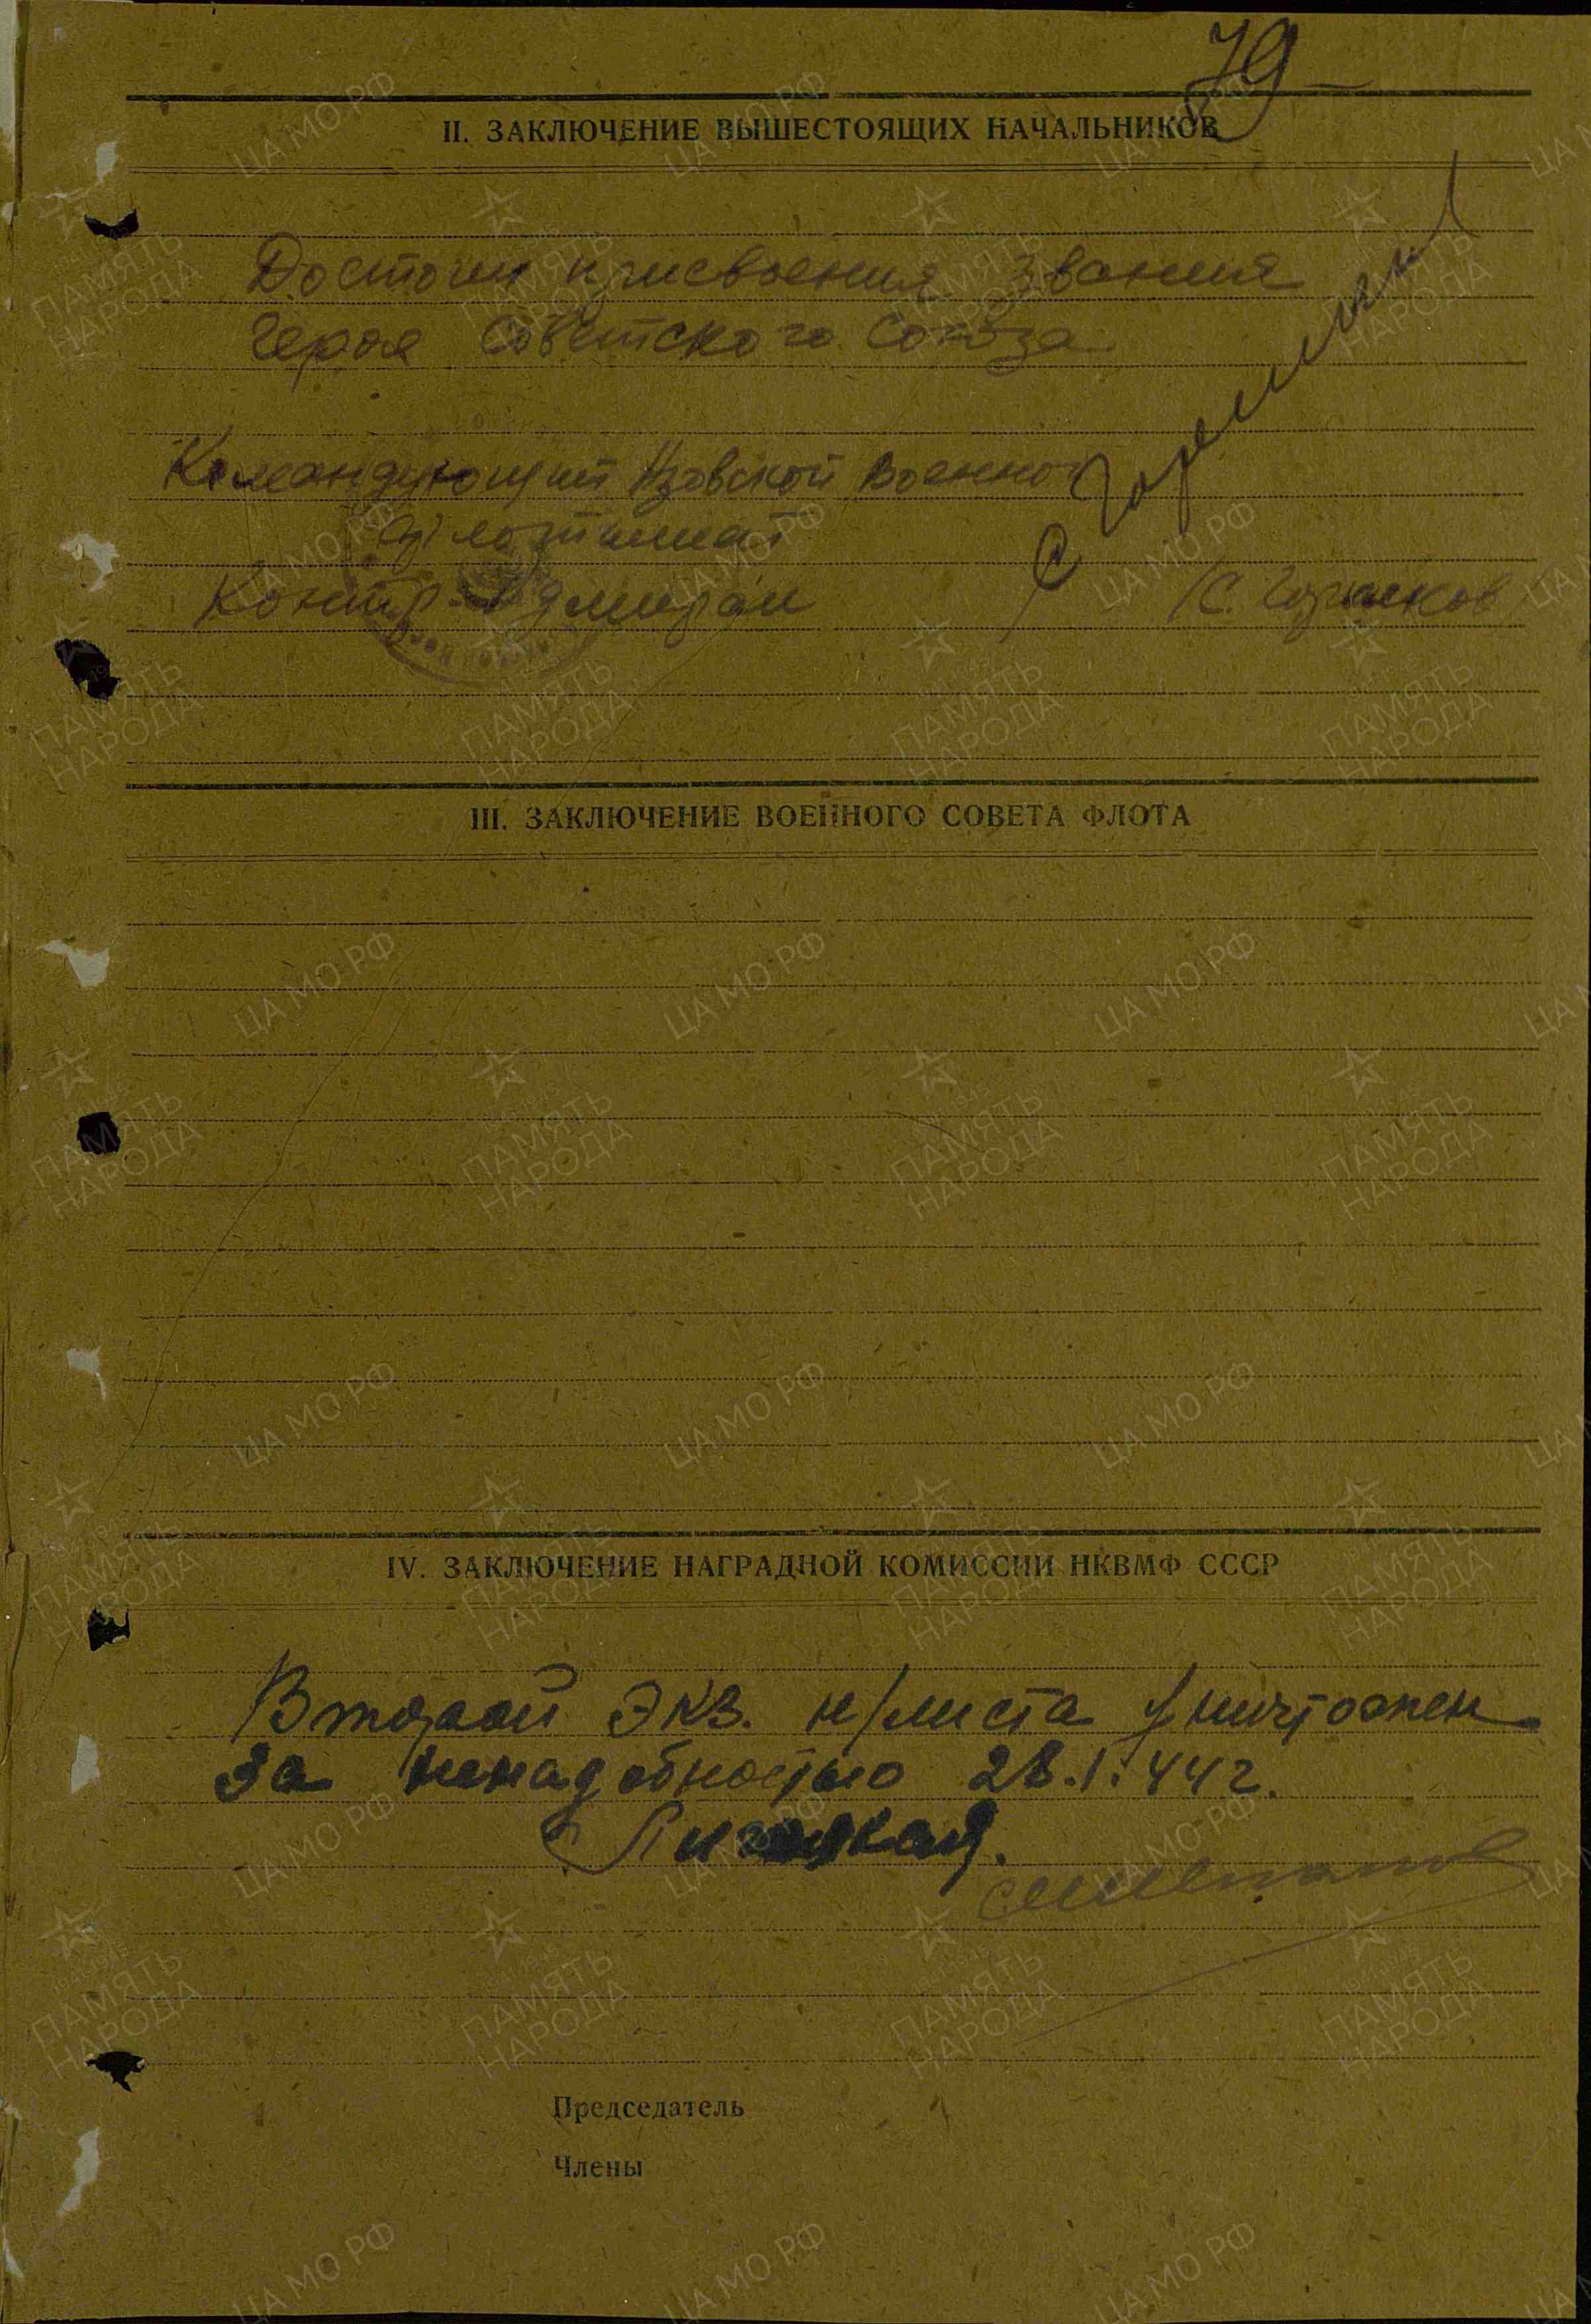 79
II. ЗАКЛЮЧЕНИЕ ВЫШЕСТОЯЩИХ НАЧАЛЬНИКОВ
Достоин присвоения звания
Героя Советского Союза
Командующий Азовской военной
флотилией
Контр-Адмирал /С. Горшков/
III. ЗАКЛЮЧЕНИЕ ВОЕННОГО СОВЕТА ФЛОТА
IV. ЗАКЛЮЧЕНИЕ НАГРАДНОЙ КОМИССИИ НКВМФ СССР
Второй экз. н/листа уничтожен
за ненадобностью 28.1.44г.
Председатель
Члены
ЦА МО РФ
ПАМЯТЬ
НАРОДА